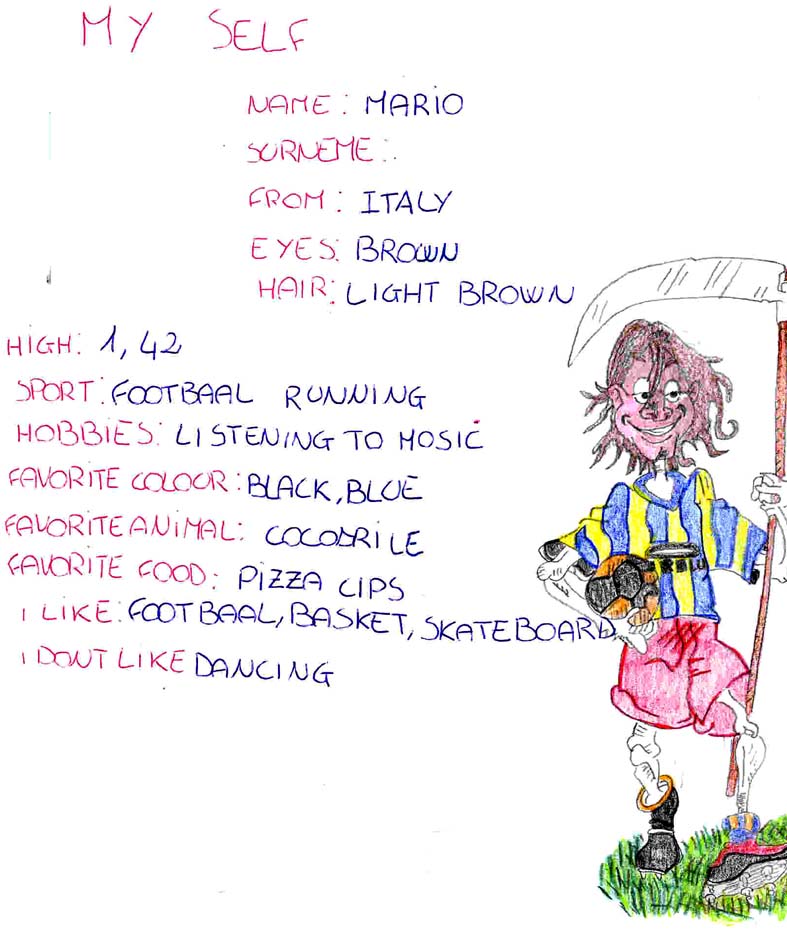 MY SELF
NAME: MARIO
SURNEME:
FROM: ITALY
EYES: BROWN
HAIR: LIGHT BROWN
HIGH: 1,42
SPORT: FOOTBAAL RUNNING
HOBBIES: LISTENING TO MOSIC
FAVORITE COLOUR: BLACK, BLUE
FAVORITE ANIMAL: COCODRILE
FAVORITE FOOD: PIZZA CIPS
I LIKE: FOOTBAAL, BASKET, SKATEBOARD
I DONT LIKE DANCING